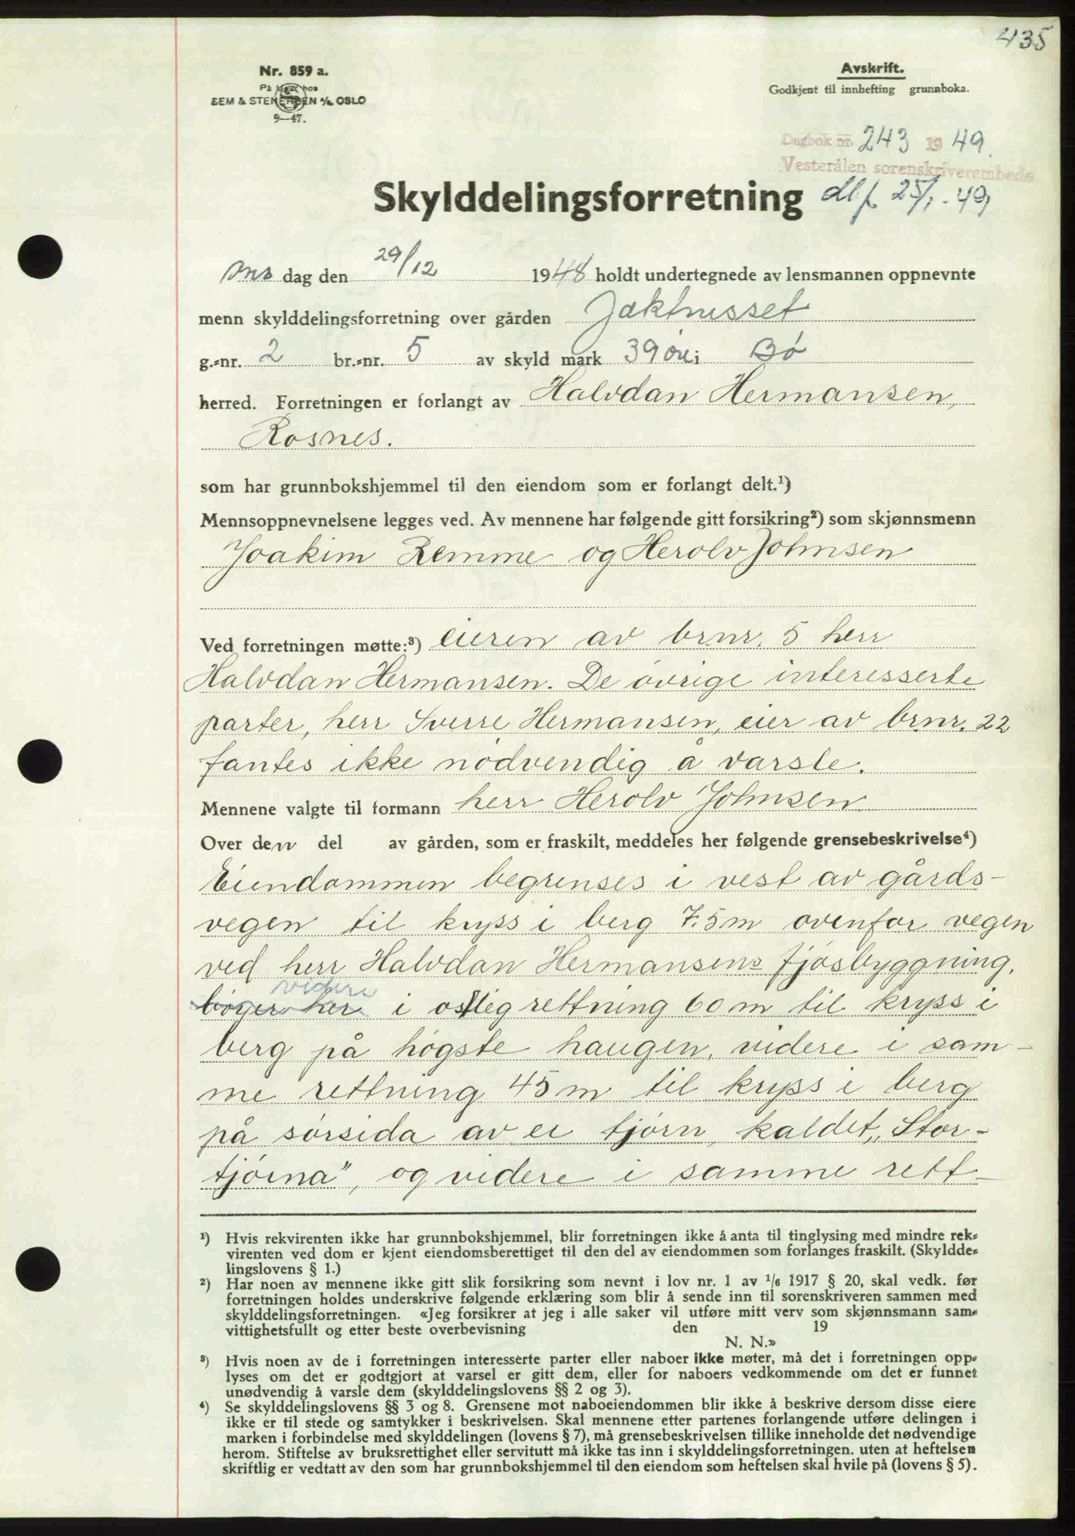 435
Nr. 859 a.
På lager hos
SEM & STENERSEN A/S OSLO
9—47.
Avskrift.
Godkjent til innhefting grunnboka.
Dagbok nr. 243 19 49.
Vesterålen sorenskriverembede
Skylddelingsforretning
25/1-49,
Ons dag den 29/12 1948 holdt undertegnede av lensmannen oppnevnte
menn skylddelingsforretning over gården Jakthusset
g.-nr. 2 br.-nr. 5 av skyld mark 39 øre i Bø
herred. Forretningen er forlangt av Halvdan Hermansen,
Rosnes.
som har grunnbokshjemmel til den eiendom som er forlangt delt.¹)
Mennsoppnevnelsene legges ved. Av mennene har følgende gitt forsikring²) som skjønnsmenn
Joakim Remme og Herolv Johnsen
Ved forretningen møtte:³) eieren av brnr. 5 herr
Halvdan Hermansen. De øvrige interesserte
parter, herr Sverre Hermansen, eier av brnr. 22
fantes ikke nødvendig å varsle.
Mennene valgte til formann herr Herolv Johnsen
Over den del av gården, som er fraskilt, meddeles her følgende grensebeskrivelse⁴)
Eiendommen begrenses i vest av gårds-
vegen til kryss i berg 7.5 m ovenfor vegen
ved herr Halvdan Hermansens fjøsbyggning,
videre
bøyer her i østlig rettning 60 m til kryss i
berg på høgste haugen, videre i sam-
me rettning 45 m til kryss i berg
på sørsida av ei tjørn, kaldet „Stor-
tjørna", og videre i samme rett-
¹) Hvis rekvirenten ikke har grunnbokshjemmel, blir forretningen ikke å anta til tinglysing med mindre rek-
virenten ved dom er kjent eiendomsberettiget til den del av eiendommen som forlanges fraskilt. (Skyldde-
lingslovens § 1.)
²) Har noen av mennene ikke gitt slik forsikring som nevnt i lov nr. 1 av 1/6 1917 § 20, skal vedk. før
forretningen holdes underskrive følgende erklæring som blir å sende inn til sorenskriveren sammen med
skylddelingsforretningen. «Jeg forsikrer at jeg i alle saker vil utføre mitt verv som skjønnsmann sam-
vittighetsfullt og etter beste overbevisning den 19
N. N.»
³) Hvis noen av de i forretningen interesserte parter eller naboer ikke møter, må det i forretningen opp-
lyses om det er godtgjort at varsel er gitt dem, eller for naboers vedkommende om det er funnet
unødvendig å varsle dem (skylddelingslovens §§ 2 og 3).
⁴) Se skylddelingslovens §§ 3 og 8. Grensene mot naboeiendommen blir ikke å beskrive dersom disse eiere
ikke er til stede og samtykker i beskrivelsen. Skal mennene etter partenes forlangende utføre delingen i
marken i forbindelse med skylddelingen (lovens § 7), må grensebeskrivelsen tillike inneholde det nødvendige
herom. Stiftelse av bruksrettighet eller servitutt må ikke tas inn i skylddelingsforretningen. uten at heftelsen
skriftlig er vedtatt av den som har grunnbokshjemmel til den eiendom som heftelsen skal hvile på (lovens § 5).